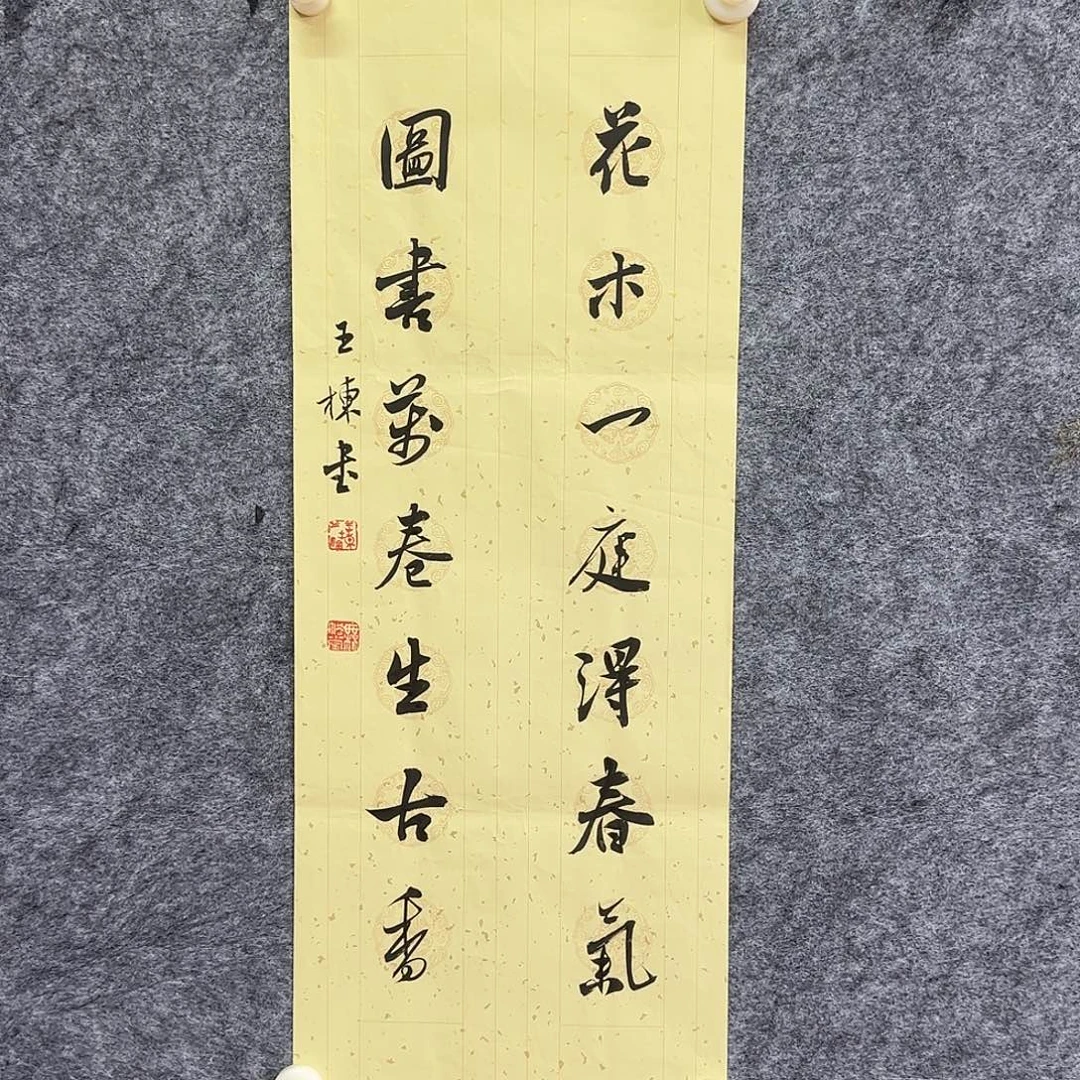 花木一庭得春氣
圖書萬卷生古香
王棟书